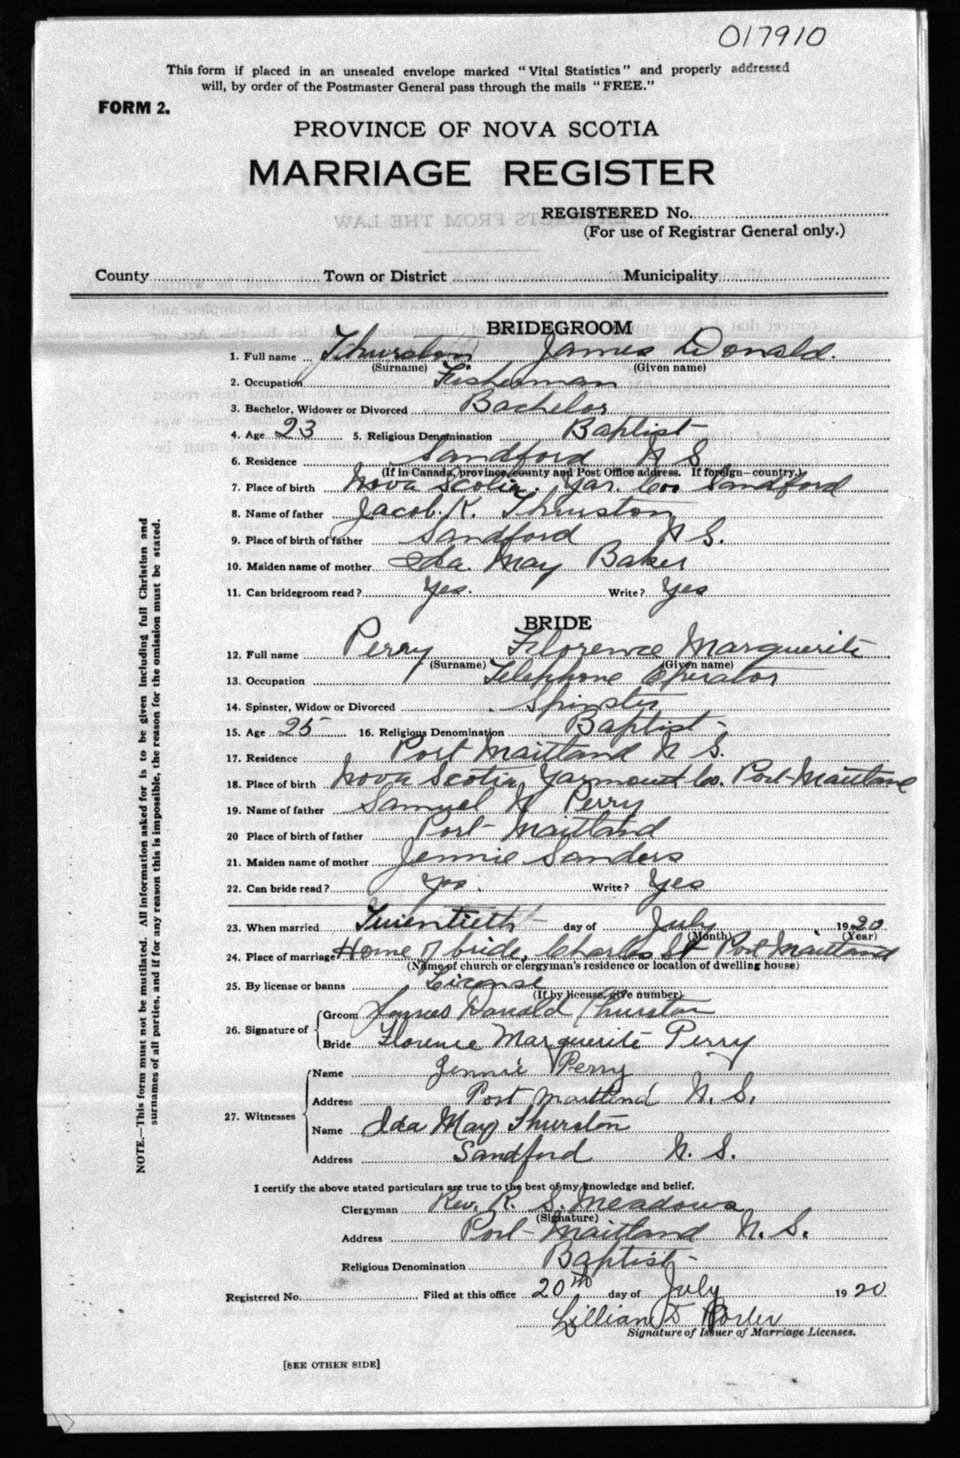 017910
This form if placed in an unsealed envelope marked "Vital Statistics" and properly addressed
will, by order of the Postmaster General pass through the mails "FREE."
FORM 2.
PROVINCE OF NOVA SCOTIA
MARRIAGE REGISTER
REGISTERED No.
(For use of Registrar General only.)
County Town or District Municipality
BRIDEGROOM
1. Full name Thurston James Donald.
(Surname) (Given name)
2. Occupation Fisherman
3. Bachelor, Widower or Divorced Bachelor
4. Age 23 5. Religious Denomination Baptist
6. Residence Sandford N S.
(If in Canada, province, county and Post Office address. If foreign—country.)
7. Place of birth Nova Scotia. Yar. Co. Sandford
8. Name of father Jacob. K. Thurston
9. Place of birth of father Sandford N S.
10. Maiden name of mother Ida. May Baker
11. Can bridegroom read? Yes. Write? Yes
BRIDE
12. Full name Perry Florence Marguerite
(Surname) (Given name)
13. Occupation Telephone Operator
14. Spinster, Widow or Divorced Spinster
15. Age 25 16. Religious Denomination Baptist
17. Residence Port Maitland N S.
18. Place of birth Nova Scotia, Yarmouth Co. Port-Maitland
19. Name of father Samuel Perry
20 Place of birth of father Port-Maitland
21. Maiden name of mother Jennie Sanders
22. Can bride read? Yes. Write? Yes
23. When married Twentieth day of July 1920
(Month) (Year)
24. Place of marriage Home of bride, Charles St Port Maitland
(Name of church or clergyman's residence or location of dwelling house)
25. By license or banns License
(If by license, give number)
26. Signature of Groom James Donald Thurston
Bride Florence Marguerite Perry
27. Witnesses Name Jennie Perry
Address Port Maitland N. S.
Name Ida May Thurston
Address Sandford N. S.
I certify the above stated particulars are true to the best of my knowledge and belief.
Clergyman Rev. R. S. Meadows
(Signature)
Address Port-Maitland N. S.
Religious Denomination Baptist
Registered No. Filed at this office 20th day of July 1920
Lillian D Porter
Signature of Issuer of Marriage Licenses.
[SEE OTHER SIDE]
NOTE.—This form must not be mutilated. All information asked for is to be given including full Christian and
surnames of all parties, and if for any reason this is impossible, the reason for the omission must be stated.